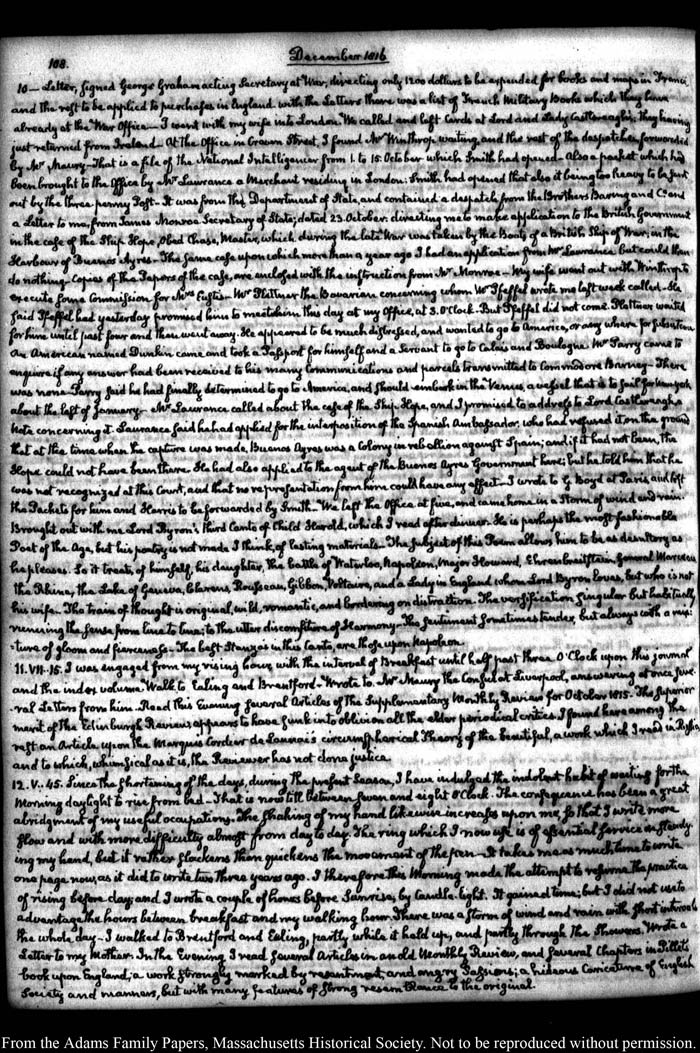 108.
December 1816
10 — Letter, signed George Graham acting Secretary at War, directing only 1200 dollars to be expended for books and maps in France
and the rest to be applied to purchases in England. with the Letters there was a list of French Military Books which they have
already at the War Office — I went with my wife into London. We called and left Cards at Lord and Lady Castlereagh's; they having
just returned from Ireland — At the Office in Craven Street, I found Mr Winthrop waiting, and the rest of the despatches forwarded
by Mr Maury — That is a file of the National Intelligencer from 1. to 15. October which Smith had opened — Also a packet which had
been brought to the Office by Mr Lawrance a Merchant residing in London: Smith had opened that also it being too heavy to be sent
out by the three penny Post — It was from the Department of State, and contained a despatch from the Brothers Baring and Co. and
a Letter to me, from James Monroe Secretary of State; dated 23. October. directing me to make application to the British Government
in the case of the Ship Hope, Obed Chase, Master, which during the late War was taken by the Boats of a British Ship of War, in the
Harbour of Buenos Ayres — The same case upon which more than a year ago I had an application from Mr Lawrance but could then
do nothing — Copies of the Papers of the case, are enclosed with the instruction from Mr Monroe — My wife went out with Winthrop to
execute some Commission for Mrs Eustis — Mr Plattner the Bavarian concerning whom Mr Pfeffel wrote me last week called — He
said Pfeffel had yesterday promised him to meet him this day at my Office, at 3. O'Clock — But Pfeffel did not come. Plattner waited
for him until past four and then went away. He appeared to be much distressed, and wanted to go to America, or any where for subsistence
An American named Dunkin came and took a Passport for himself and a Servant to go to Calais and Boulogne. Mr Parry came to
enquire if any answer had been received to his many Communications and parcels transmitted to Commodore Barney — There
was none — Parry said he had finally determined to go to America, and should embark in the Venus, a vessel that is to sail for
about the last of January — Mr Lawrance called about the case of the Ship Hope, and I promised to address to Lord Castlereagh, a
Note concerning it. Lawrance said he had applied for the interposition of the Spanish Ambassador, who had refused it on the ground
that at the time when the capture was made, Buenos Ayres was a Colony in rebellion against Spain; and if it had not been, the
Hope could not have been there. He had also applied to the agent of the Buenos Ayres Government here; but he told him that he
was not recognized at this Court, and that no representation from him could have any effect — I wrote to G. Boyd at Paris, and left
the Packets for him and Harris to be forwarded by Smith — We left the Office at five, and came home in a Storm of wind and rain.
Brought out with me Lord Byron's third Canto of Child Harold, which I read after dinner. He is perhaps the most fashionable
Poet of the Age, but his poetry is not made I think, of lasting materials — The subject of this Poem allows him to be as desultory as
he pleases. So it treats, of himself, his daughter, the battle of Waterloo, Napoleon, Major Howard, Ehrenbreitstein, General Marceau
the Rhine, the Lake of Geneva, Clarens, Rousseau, Gibbon, Voltaire, and a Lady in England whom Lord Byron loves, but who is not
his wife. The train of thought is original, wild, romantic, and bordering on distraction. The versification singular but habitually
running the sense from line to line; to the utter discomfiture of Harmony — The sentiment sometimes tender, but always with a mix-
-ture of gloom and fierceness — The best Stanzas in this Canto, are those upon Napoleon.
11. VII. 15. I was engaged from my rising hour, with the interval of Breakfast until half past three O'Clock upon this journal
and the index volume. Walk to Ealing and Brentford — Wrote to Mr Maury the Consul at Liverpool, answering at once seve-
-ral Letters from him — Read this Evening several Articles of the Supplementary Monthly Review for October 1815. The superior
merit of the Edinburgh Reviews appears to have sunk into oblivion all the elder periodical critics. I found here among the
rest an Article upon the Marquess Lordeur de Launai's circumspherical Theory of the beautiful, a work which I read in Russia
and to which, whimsical as it is, the Reviewer has not done justice.
12. V. 45. Since the shortening of the days, during the present Season, I have indulged the indolent habit of waiting for the
Morning daylight to rise from bed — That is now till between seven and eight O'Clock — The consequence has been a great
abridgment of my useful occupations. The shaking of my hand likewise increases upon me, so that I write more
slow and with more difficulty almost from day to day. The ring which I now use is of essential service in steady-
ing my hand, but it rather slackens than quickens the movement of the pen — It takes me as much time to write
one page now, as it did to write two three years ago. I therefore this Morning made the attempt to resume the practice
of rising before day; and I wrote a couple of hours before Sunrise, by Candle-light. It gained time; but I did not use to
advantage the hours between breakfast and my walking hour. There was a storm of wind and rain with short intervals
the whole day — I walked to Brentford and Ealing, partly while it held up, and partly through the Showers. Wrote a
Letter to my Mother. In the Evening, I read several Articles in an old Monthly Review, and several Chapters in Pillet's
book upon England; a work strongly marked by resentment, and angry Passions; a hideous Caricature of English
Society and manners, but with many features of strong resemblance to the original.
From the Adams Family Papers, Massachusetts Historical Society. Not to be reproduced without permission.